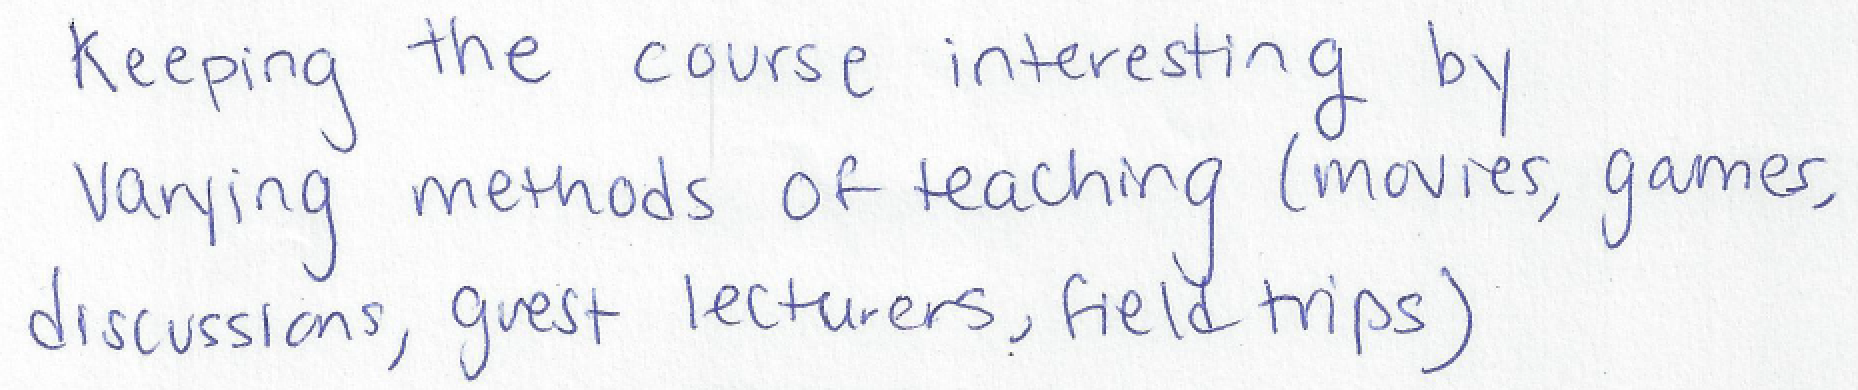 Keeping the course interesting by
varying methods of teaching (movies, games,
discussions, guest lecturers, field trips)